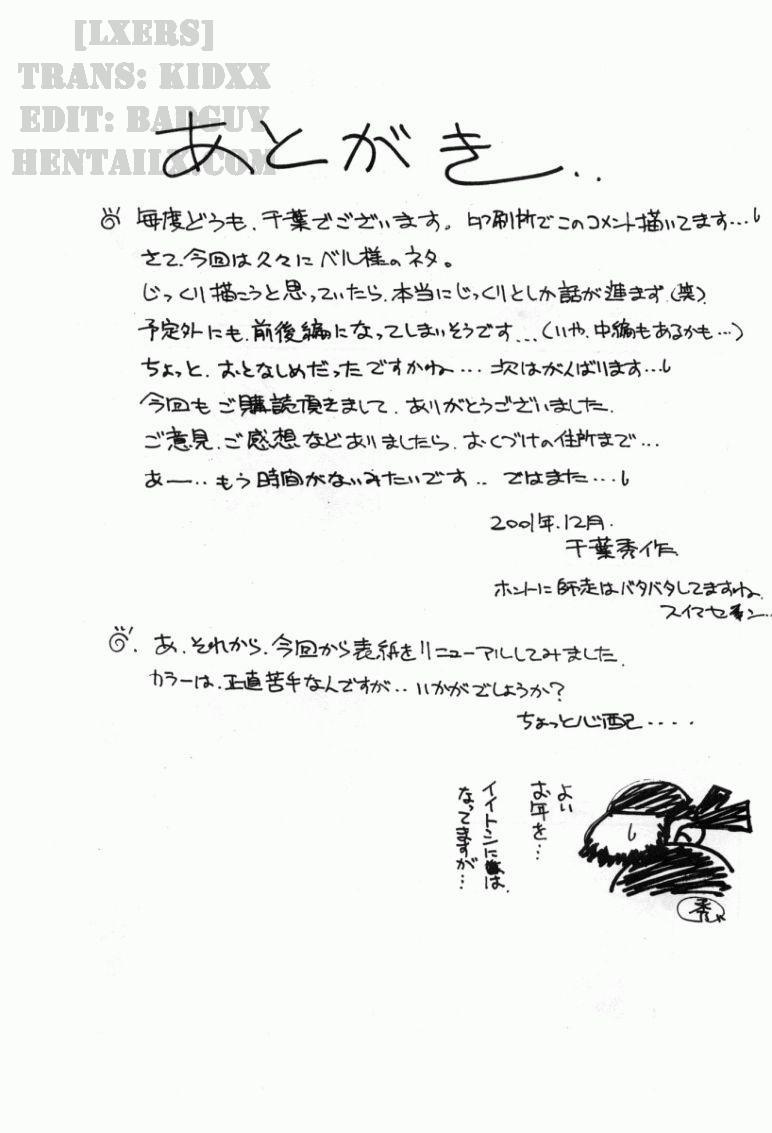 [LXERS]
TRANS: KIDXX
EDIT: BADGUY
HENTAILX.COM
あとがき..
毎度どうも、千葉でございます。印刷所でこのコメント描いてます…
さて、今回は久々にベル様のネタ。
じっくり描こうと思っていたら、本当にじっくりとしか話が進まず(笑)
予定外にも、前後編になってしまいそうです…(いや、中編もあるかも…)
ちょっと、おとなしめだったですかね…次はがんばります…
今回もご購読頂きまして、ありがとうございました.
ご意見、ご感想などありましたら、おくづけの住所まで…
あー‥もう時間がないみたいです‥ ではまた…
2001年.12月.
千葉秀作
ホントに師走はバタバタしてますね.
スイマセン…
あ、それから、今回から表紙をリニューアルしてみました.
カラーは、正直苦手なんですが‥いかがでしょうか?
ちょっと心配‥‥
よい
お年を…
イイトシには、
なってますが…
秀